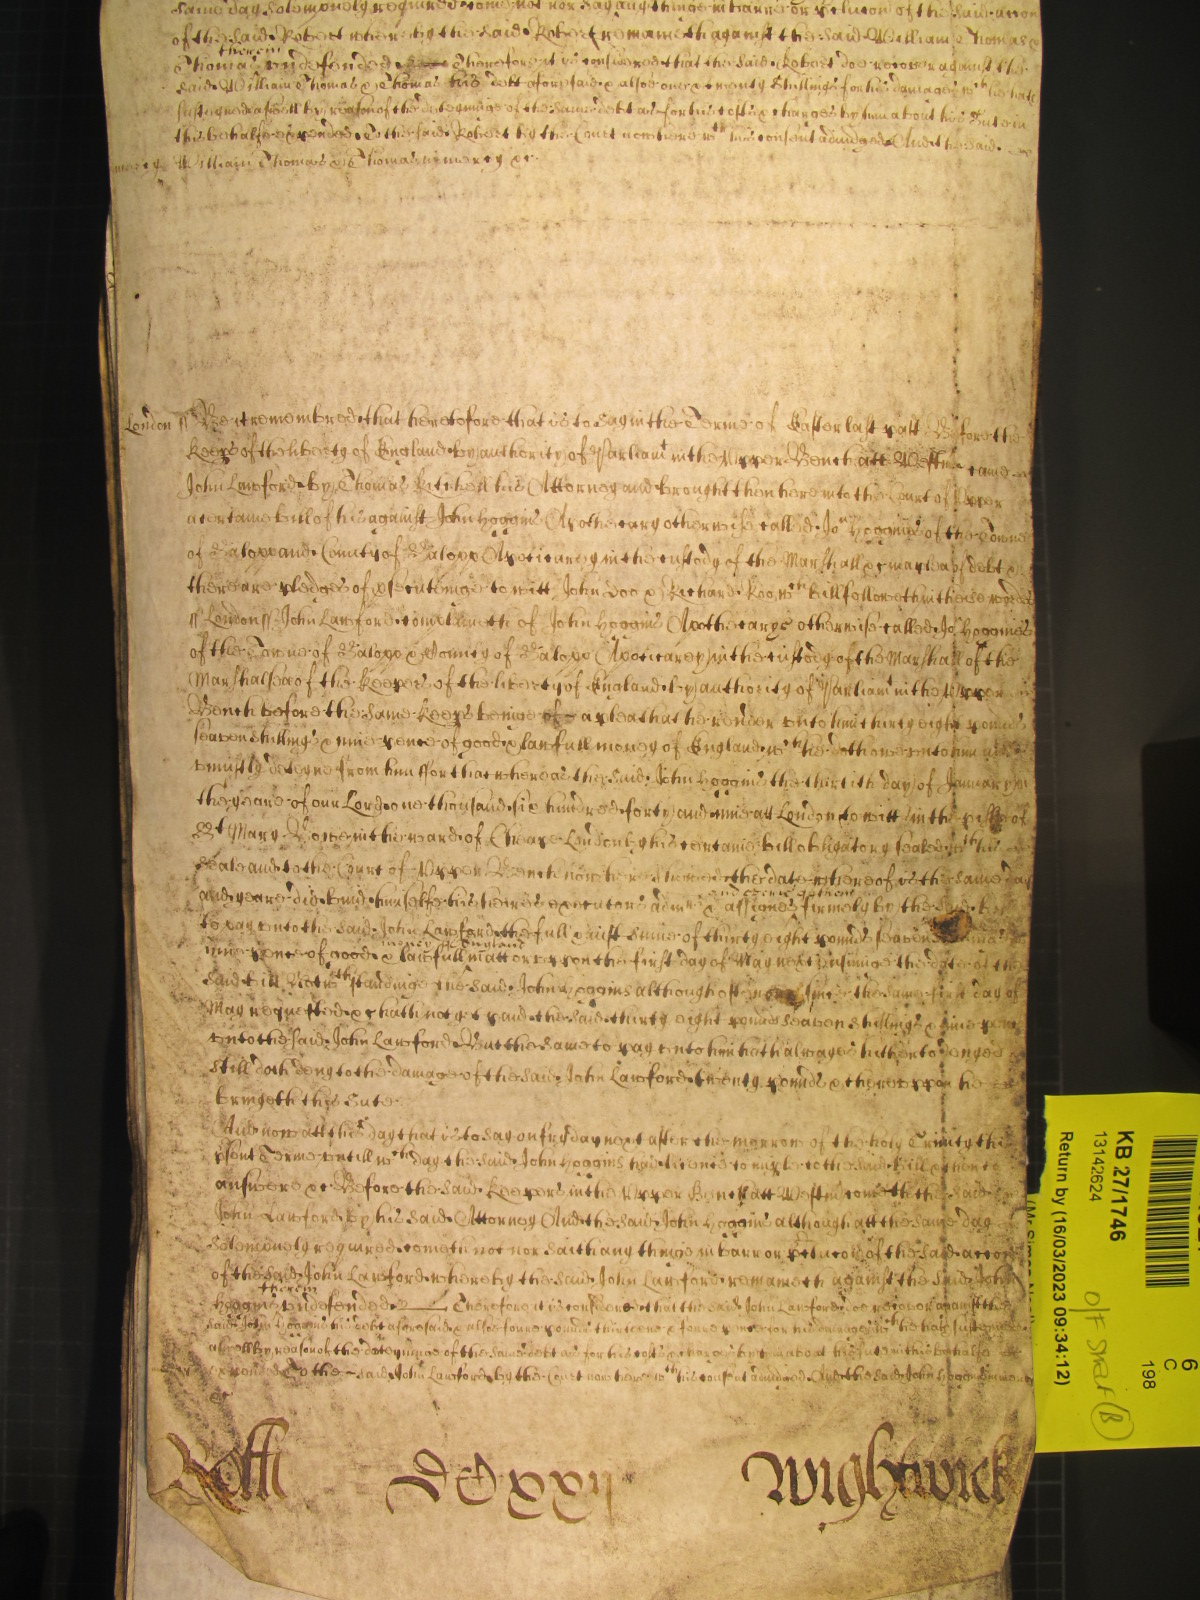 same day solemnely required come not nor say any thinge in barre or of the said accon
of the said Robert whereby the said Robert remaineth against the said William Thomas &
therein
Thomas undefended Therefore it is considered that the said Robert doe recover against the
said William Thomas & Thomas his debt aforesaid & alsoe one & twenty shillings for his damages wch he hath
susteyned aswell by reason of the deteyninge of the same debt as for his costs & charges by him about his suite in
this behalfe expended To the said Robert by the Court now here wth his consent adiudged And the said
mercy William Thomas & Thomas in mercy &c
London ss Be it remembred that heretofore that is to say in the Terme of Easter last past Before the
Keeps of the liberty of England by authority of Parliamt in the Upper Bench att Westmr came
John Lawford by Thomas Kitchen his Attorney and brought then here into the Court of Upper
a certaine bill of his against John Hoggins Apothecary otherwise called Jon Hoggins of the Towne
of Salopp and County of Salopp Apoticarey in the custody of the Marshall &c in a plea of debt &
there are pledges of psecutinge to witt John Doo & Richard Roo wch bill followeth in these words
ss London ss John Lawford complaineth of John Hoggins Apothecarye otherwise called Jo: Hoggins
of the Towne of Salopp & County of Salopp Apoticarey in the custody of the Marshall of the
Marshalsea of the Keeps of the liberty of England by authority of Parliamt in the Upper
Bench before the same Keeps beinge of a plea that he render unto him thirty eight pounds
seaven shillings & nine pence of good & lawfull money of England wch he doth owe unto him and
uniustly deteyne from him ffor that whereas the said John Hoggins the thirtith day of January in
the yeare of our Lord one thousand six hundred forty and nine att London to witt in the pish of
St Mary Bowe in the ward of Cheape London by his certaine bill obligatory sealed wth his
seale and to the Court of Upper Bench now here shewed the date whereof is the same day
and every of them
and yeare did bind himselfe his heires executors admrs & assignes firmely by the said bill
to pay unto the said John Lawford the full & iust summe of thirty eight pounds seaven shillings
money of England
nine pence of good & lawfull upon the first day of May next ensuinge the date of the
said bill Notwthstandinge the said John Hoggins although often since the same first day of
May requested &c hath not yet paid the said thirty eight pounds seaven shillings & nine pence
unto the said John Lawford But the same to pay unto him hath alwayes hitherto denyed
still doth deny to the damage of the said John Lawford twenty pounds & thereupon he
bringeth this suite
And now att this day that is to say on fryday next after the morrow of the holy Trinity this
psent Terme untill wch day the said John Hoggins had licence to imple to the said bill & then to
answere &c Before the said Keepers in the Upper Bench att Westmr cometh the said
John Lawford by his said Attorney And the said John Hoggins although att the same day
solemnely required cometh not nor saith any thinge in barr or of the said accon
of the said John Lawford whereby the said John Lawford remaineth against the said John
therein
Hoggins undefended Therefore it is considered that the said John Lawford doe recover against the
said John Hoggins his debt aforesaid & alsoe foure pounds thirteene & foure pence for his damages wch he hath susteyned
aswell by reason of the deteyninge of the same debt as for his costs & charges by him about his suite in this behalfe
expended To the said John Lawford by the Court now here wth his consent adiudged And the said John Hoggins in mercy
&c
Roll
DCxxij
Wightwick
KB 27/1746
13142624
Return by (16/03/2023 09:34:12)
6
C
198
B